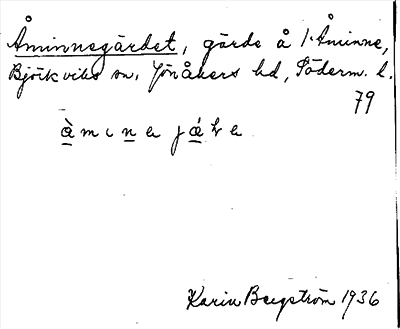 Åminnegärdet, gärde å 1:Åminne,
Björkviks sn, Jönåkers hd, Söderm. l.
79
Karin Bergström 1936